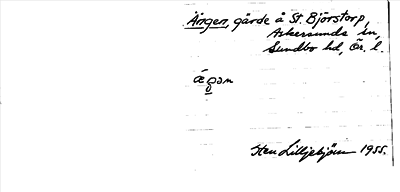 Ängen, gärde å St. Björstorp,
Askersunds sn,
Sundbo hd, Ör. l.
ægən
Sten Lilljebjörn 1955.